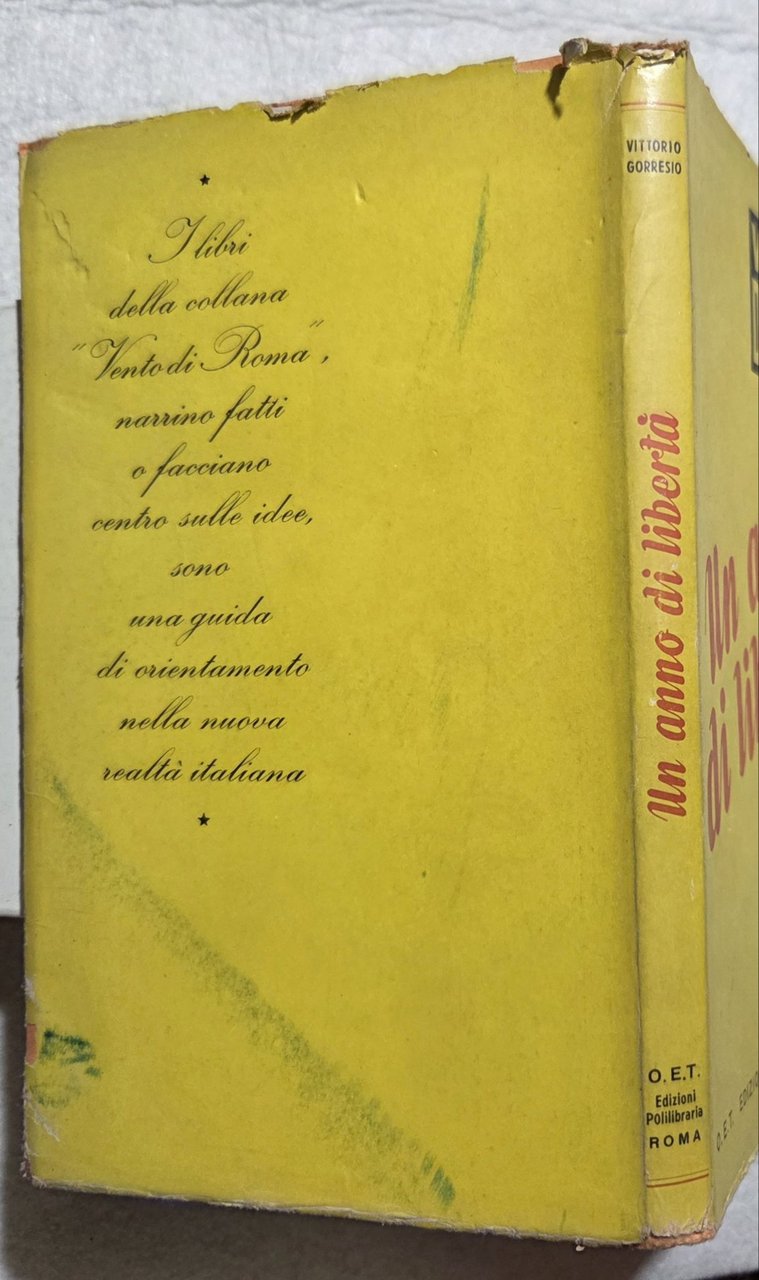 I libri
della collana
"Vento di Roma",
narrino fatti
o facciano
centro sulle idee,
sono
una guida
di orientamento
nella nuova
realtà italiana
VITTORIO
GORRESIO
Un anno di libertà
O.E.T.
Edizioni
Polilibraria
ROMA
Un
di
O.E.T.